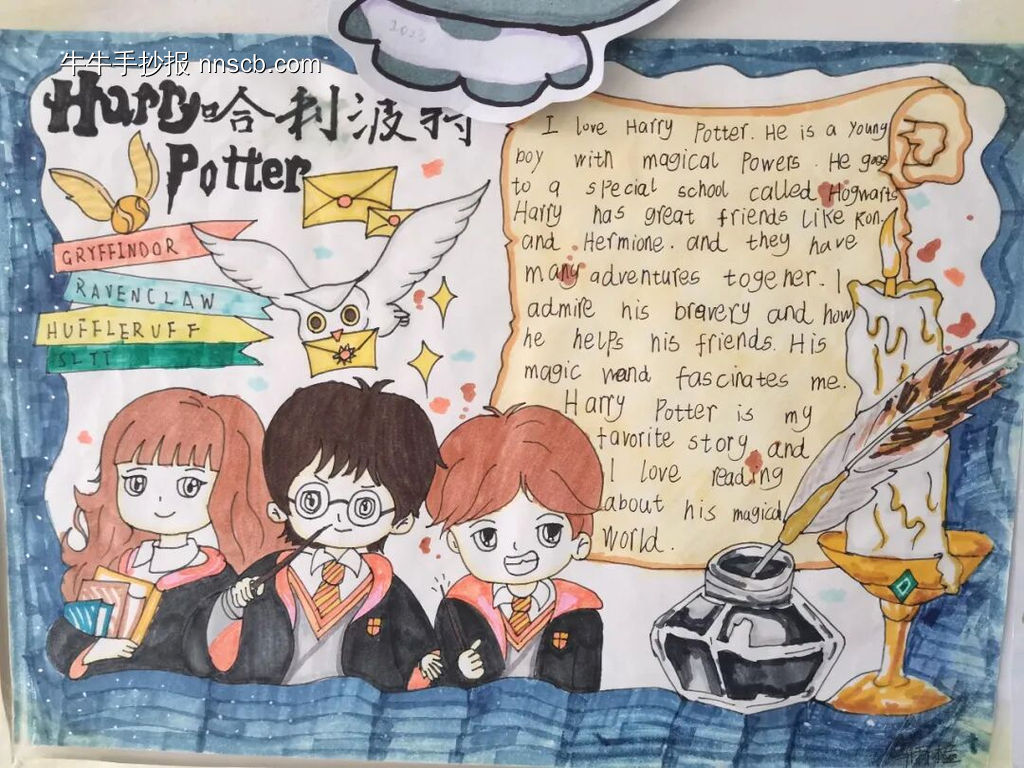 牛牛手抄报 nnscb.com
2023
Hurry 哈利波特
Potter
GRYFFINDOR
RAVENCLAW
HUFFLERUFF
SLTT
I love Harry Potter. He is a young
boy with magical Powers. He goes
to a special school called Hogwarts
Harry has great friends like Ron.
and Hermione. and they have
many adventures together. I
admire his bravery and how
he helps his friends. His
magic wand fascinates me.
Harry Potter is my
favorite story and
I love reading
about his magical
World.